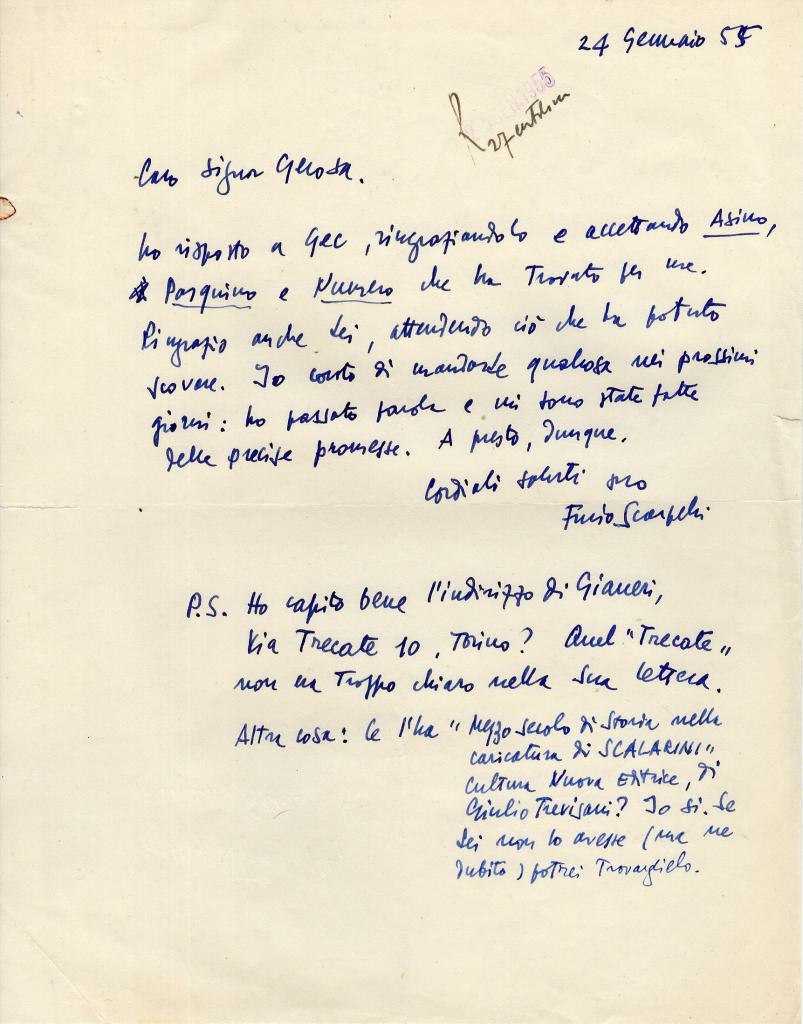 24 Gennaio 55
GEN.1955
R 27
Caro Signor Gerosa.
ho risposto a Gec, ringraziandolo e accettando Asino,
Pasquino e Numero che ha Trovato per me.
Ringrazio anche Lei, attendendo ciò che ha potuto
scovare. Io conto di mandarle qualcosa nei prossimi
giorni: ho passato parola e mi sono state fatte
delle precise promesse. A presto, dunque.
Cordiali saluti suo
Furio Scarpelli
P.S. Ho capito bene l'indirizzo di Gianeri,
Via Trecate 10, Torino? Quel "Trecate"
non era Troppo chiaro nella Sua lettera.
Altra cosa: Ce l'ha "Mezzo secolo di Storia nella
caricatura di SCALARINI"
Cultura Nuova Editrice, di
Giulio Trevisani? Io sì. Se
Lei non lo avesse (ma ne
dubito) potrei Trovarglielo.